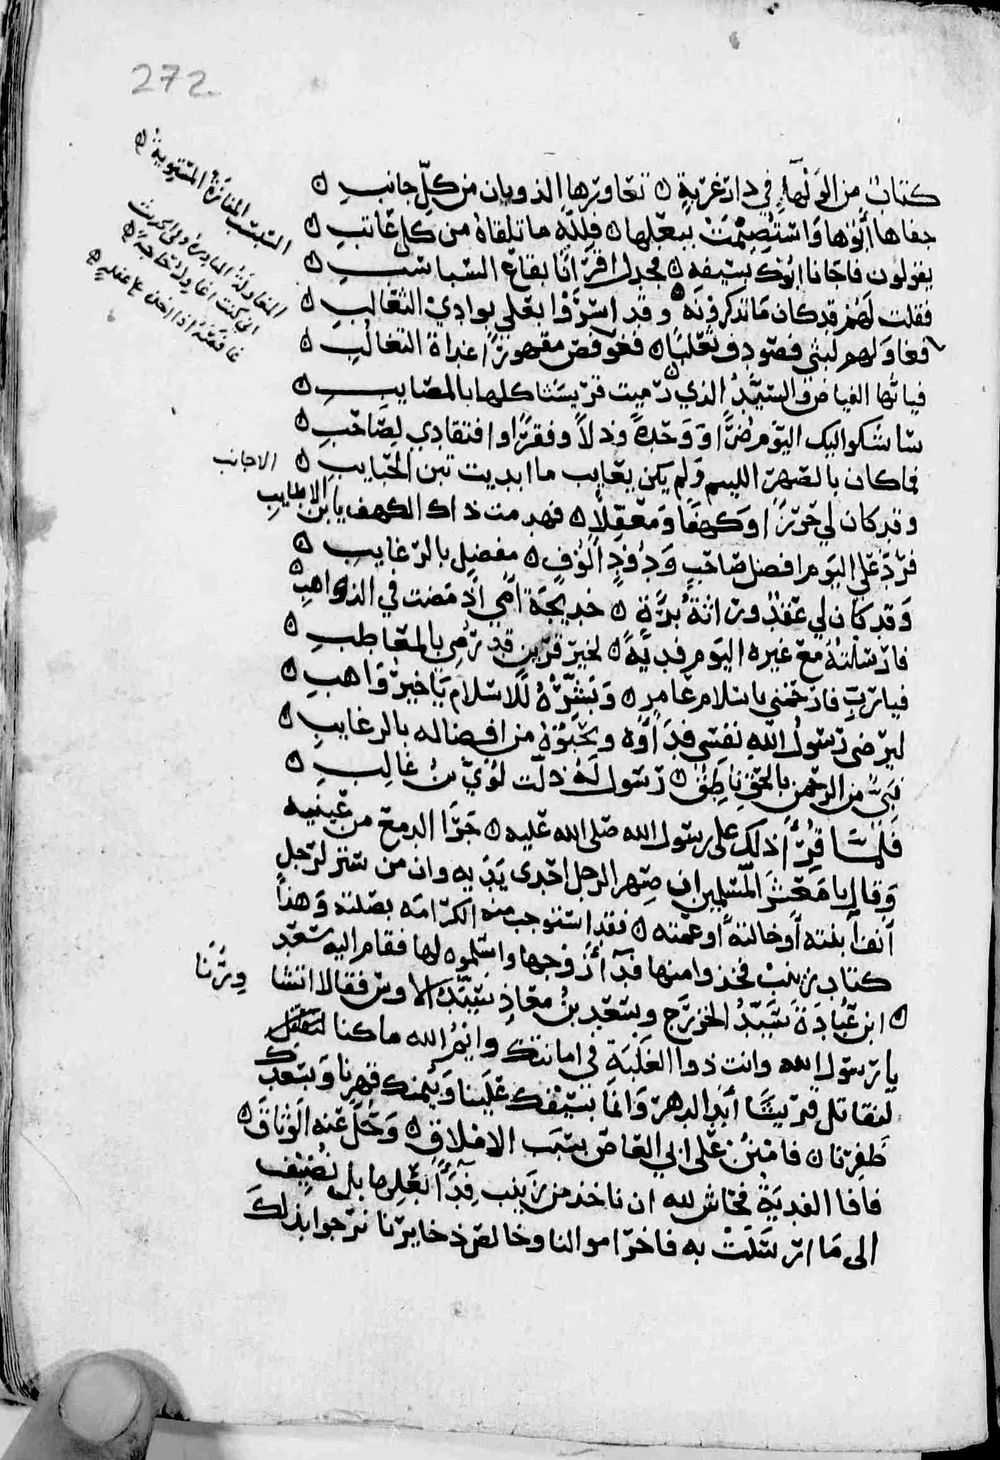 272
كتاب من الولهاء في دار غربة ه تعاورها الذوبان من كل جانب ه
جفاها ابوها واستضيمت ببعلها ه فلله ما تلقاه من كل عاتب ه
يقولون فاجانا ابوك بسيفه ه مجدل اقرانا بقاع السباسب ه
فقلت لهم قد كان ما تذكرونه ه وقد اسروا بعلي بوادي الثعالب ه
فعاولهم ليثي فصودف ثعلبا ه فعوفص مقهورا غداة التغالب ه
فيا ايها الفياض والسيد الذي ه رميت قريشا كلها بالمصايب ه
ساشكوا اليك اليوم ضرا ووحدة وذلا وفقرا وافتقادي لصاحب ه
فما كان بالصهر الليم ولم يكن يعايب ما ابديت بين الحبايب ه
الاجانب
وقد كان لي حرزا وكهفا ومعقلا ه فهد من ذاك الكهف يا ابن الاطايب
فرد علي اليوم افضل صاحب وجود الوف ه مفضل بالرغايب ه
وقد كان لي عقد وراثة برة ه خديجة امي اذ مضت في الذواهب ه
فارسلته مع غيره اليوم فدية ه لخير قرين قد رمي بالمعاطب ه
فيا رب فارحمني باسلام عامر ه وبشره للاسلام يا خير واهب ه
ليرضى رسول الله نفسي فداؤه ويحبوه من افضاله بالرغايب ه
نبي من الرحمن بالحق ناطق ه رسول له ذلت لؤي بن غالب ه
فلما قرا ذلك على رسول الله صلى الله عليه ه جرا الدمع من عينيه
وقال يا معشر المسلمين ان صهر الرجل احدى يديه وان من ستر لرجل
ابنته او خالته او عمته ه فقد استوجب منه الكرامه بصلته وهذا
كتاب زينب فخذوا منها فدآ زوجها واسلموه لها فقام اليه سعد
ه ابن عبادة سيد الخزرج وسعد بن معاذ سيد الاوس فقالا انشا
يا رسول الله وانت ذوا الغلبة في امانتك وايم الله ما كنا
لنقاتل قريشا ابد الدهر وانما بسيفك علينا وبيمنك قهرنا وبسعدك
ظفرنا ه فامنن على ابي العاص بسبب الاملاق ه وحل عنه الوثاق ه
فاما الفدية فحاش لله ان ناخذ من زينب فدآ لبعلها بل نضيف
الى ما ارسلت به فاخر اموالنا وخالص ذخايرنا نرجوا بذلك